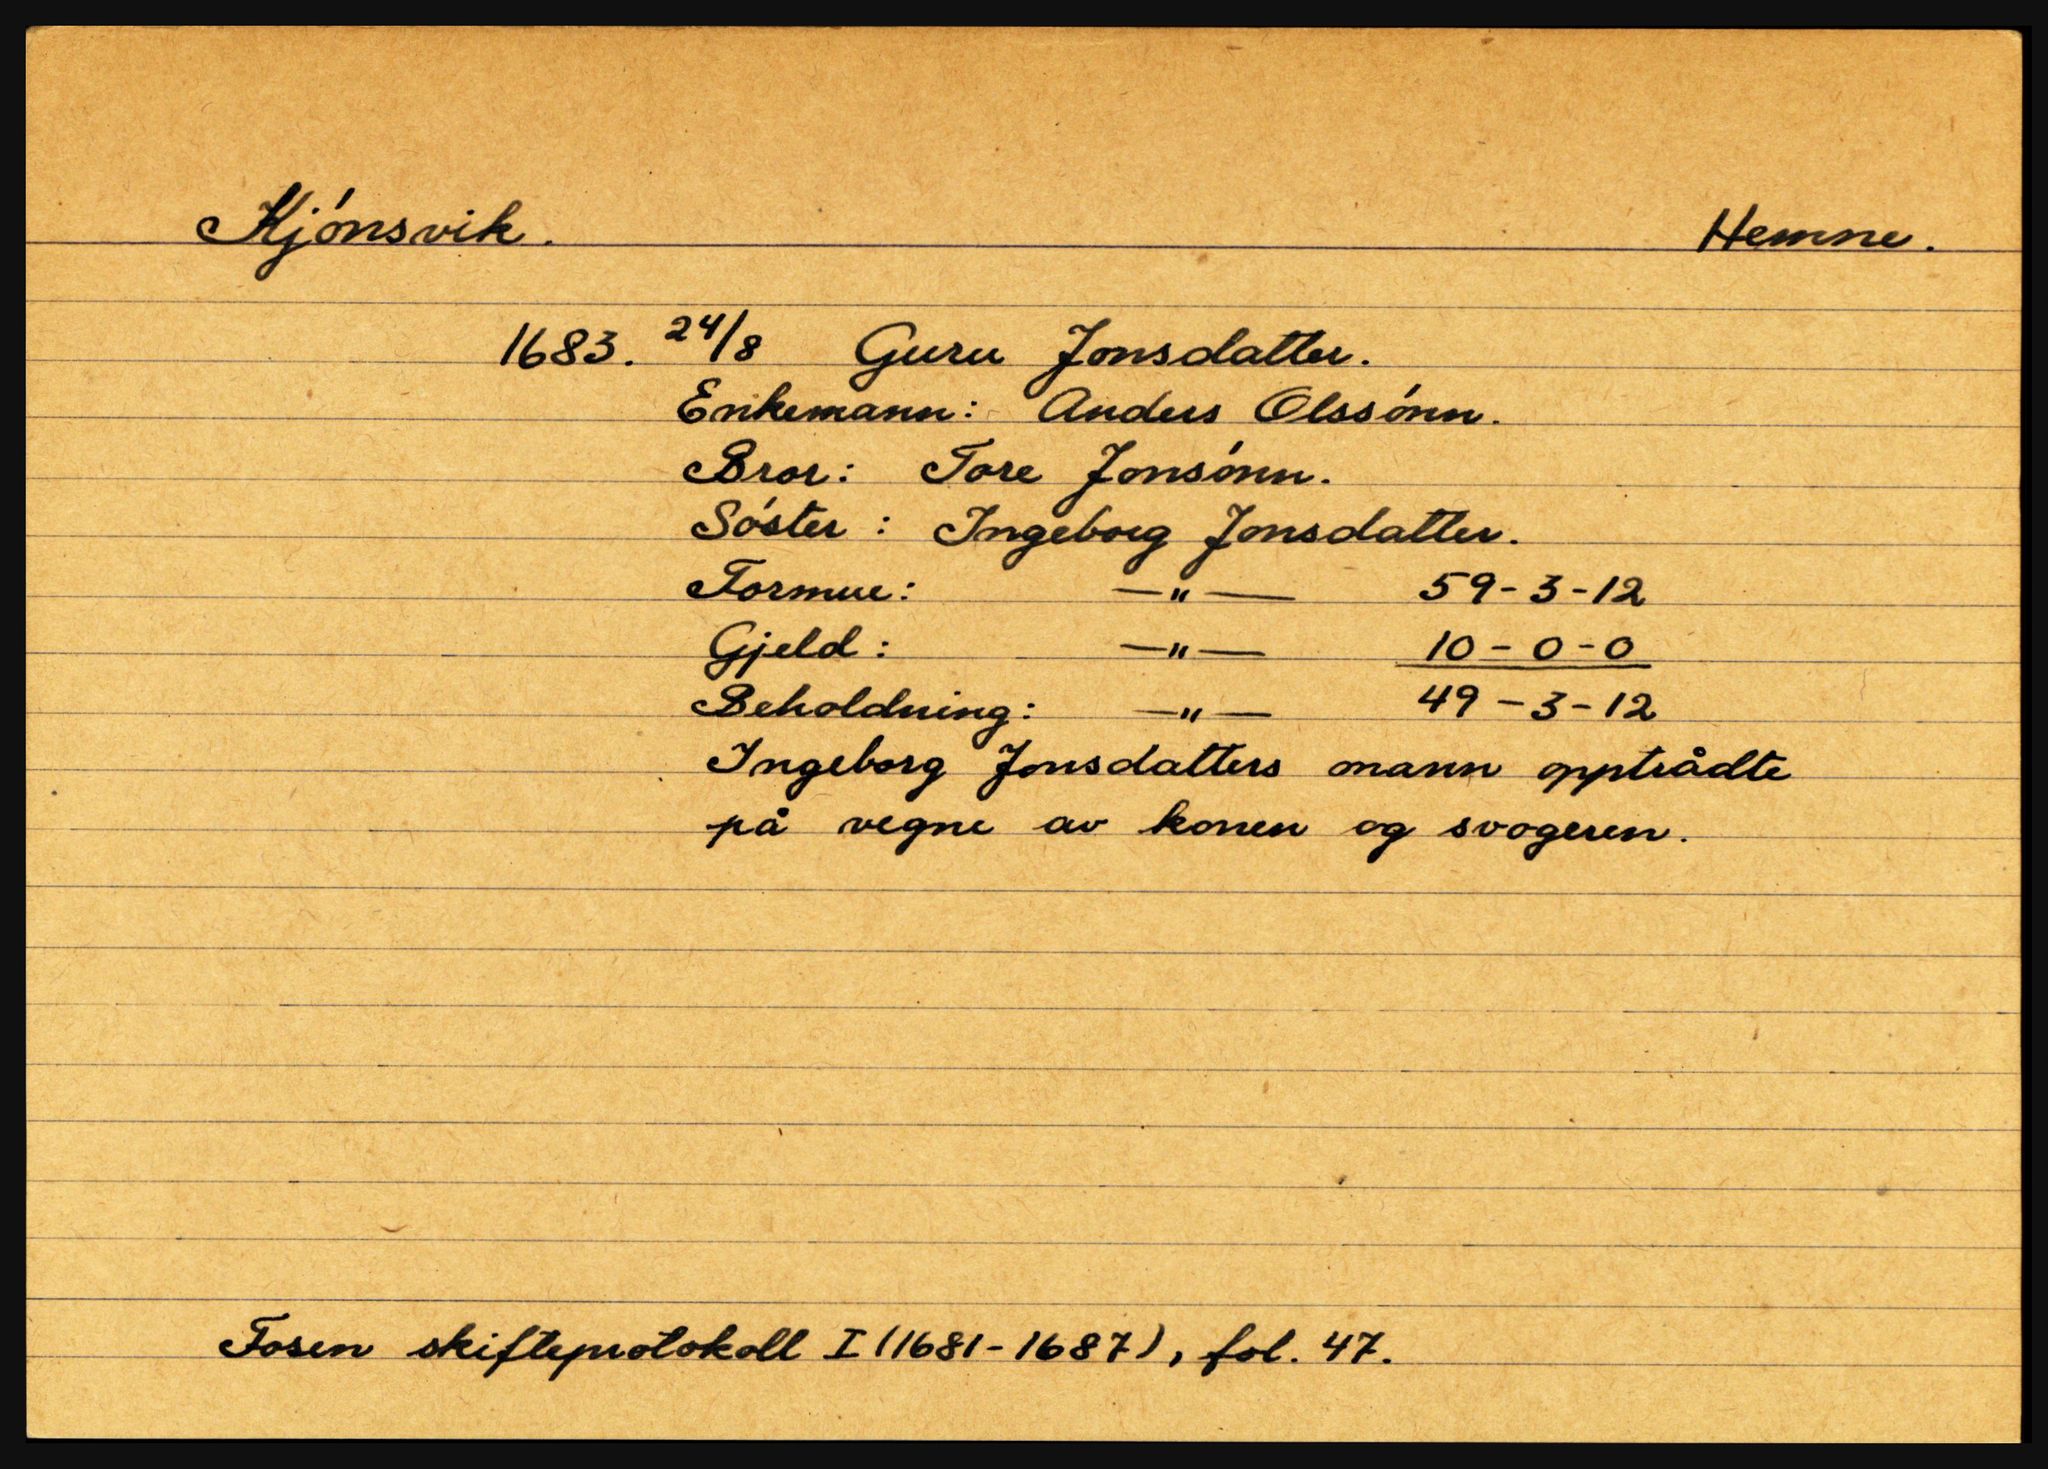 Kjónsvik. Hemne.
1683. 24/8 Guru Jonsdatter.
Enkemann: Anders Olssónn.
Bror: Tore Jonsónn.
Sóster: Ingeborg Jonsdatter.
Formue: —"— 59-3-12
Gjeld: —"— 10-0-0
Beholdning: —"— 49-3-12
Ingeborg Jonsdatters mann opptrådte
på vegne av konen og svogeren.
Fosen skifteprotokoll I (1681-1687), fol. 47.